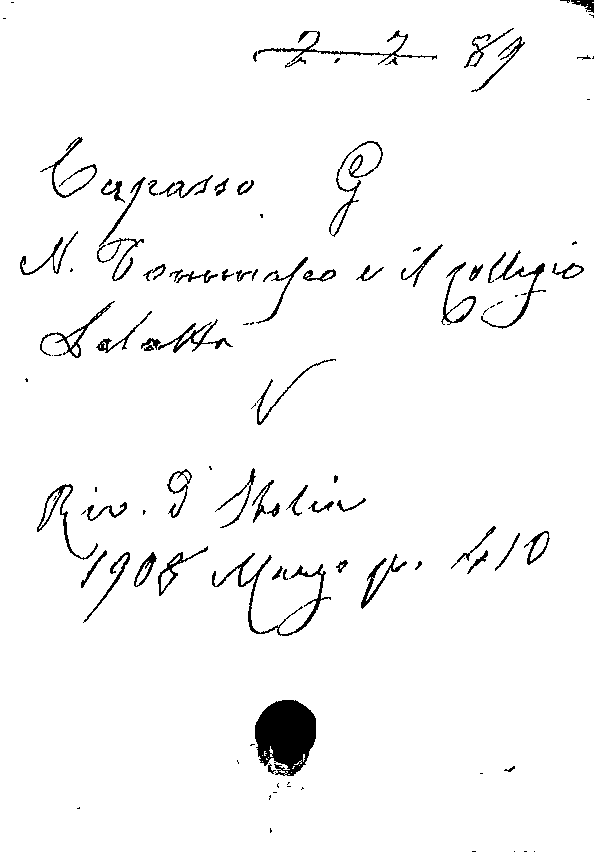 2. 2 89
Capasso G
N. Tommaseo e il collegio
Salatta
V
Riv. d'Italia
1908 Marzo p. 410